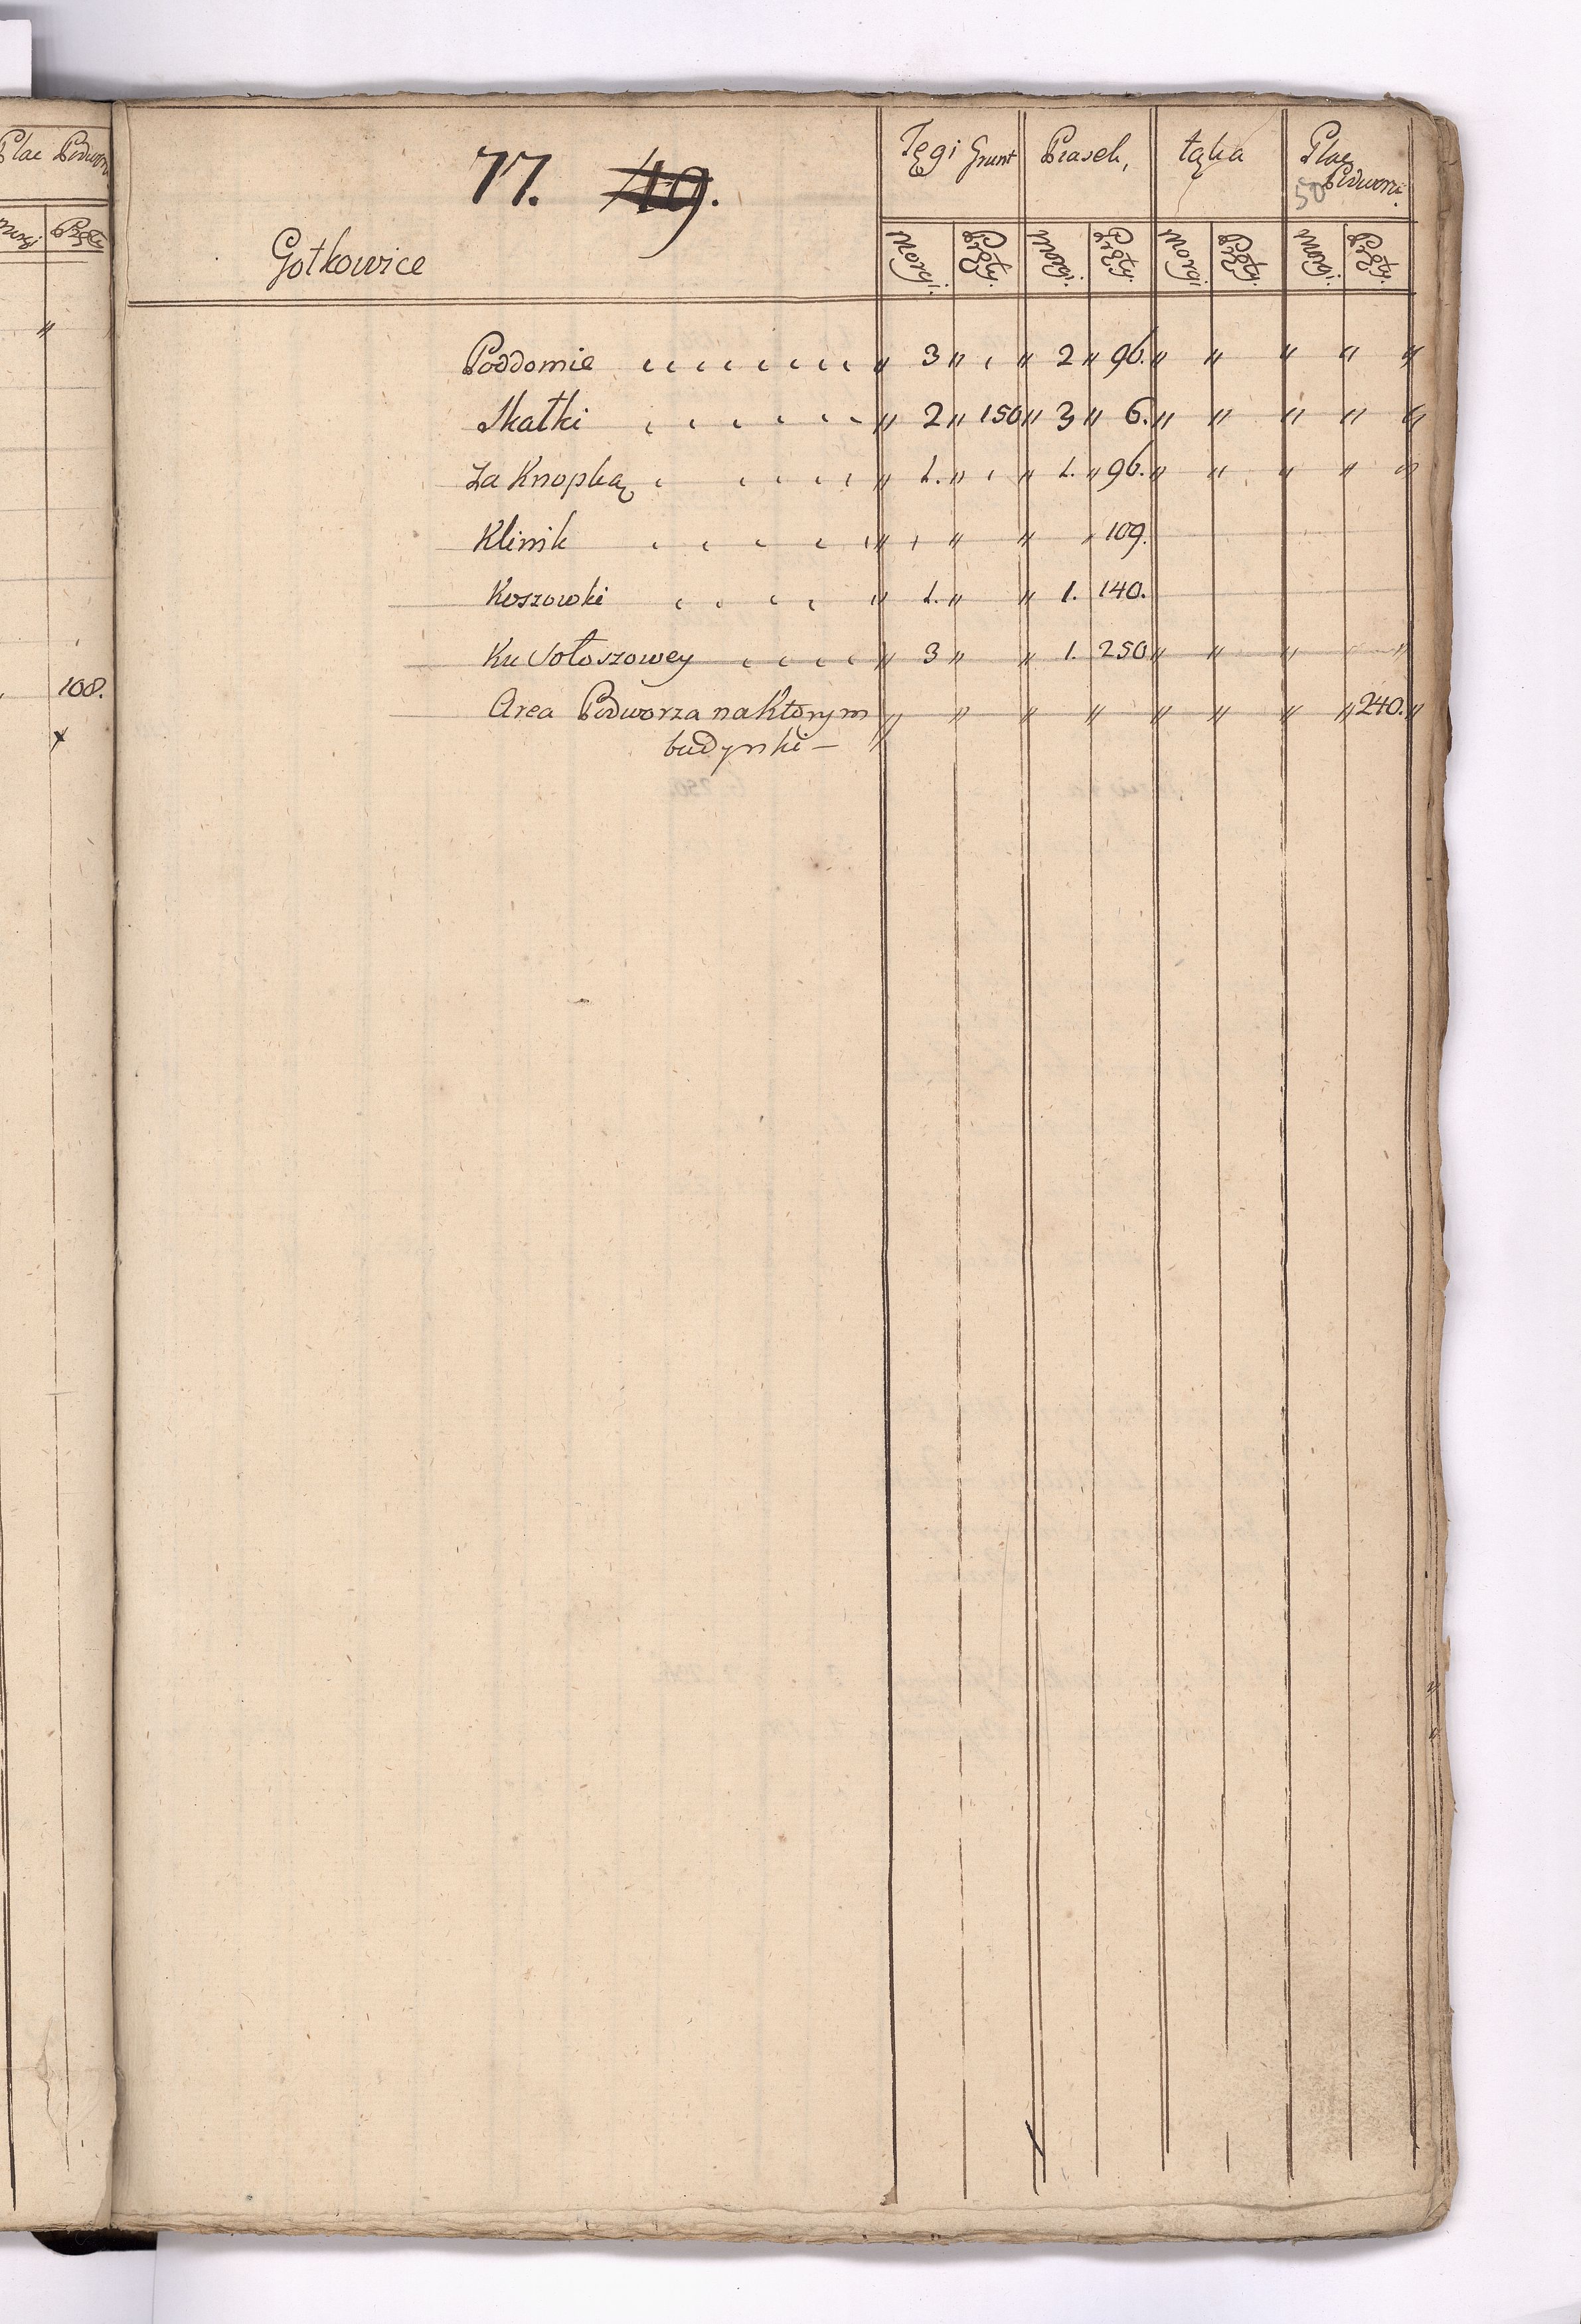 Plac Podworz
Morgi Pręty
"
108.
77. 49.
Gotkowice
Tęgi Grunt Piasek, łąka Plac Podworz.
50
Morgi. Pręty. Morgi. Pręty. Morgi. Pręty. Morgi. Pręty.
Poddomie " 3 " " 2 " 96. " " " " "
Skałki " 2 " 150 " 3 " 6. " " " " "
Za Knopką " 1. " " 1. " 96. " " " " "
Klinik " " " " 109.
Koszowki " 1. " " 1. 140.
Ku Sołoszowey " 3 " " 1. 250 " " " "
Area Podworza na Ktorym " " " " " " " " 240. "
budynki —